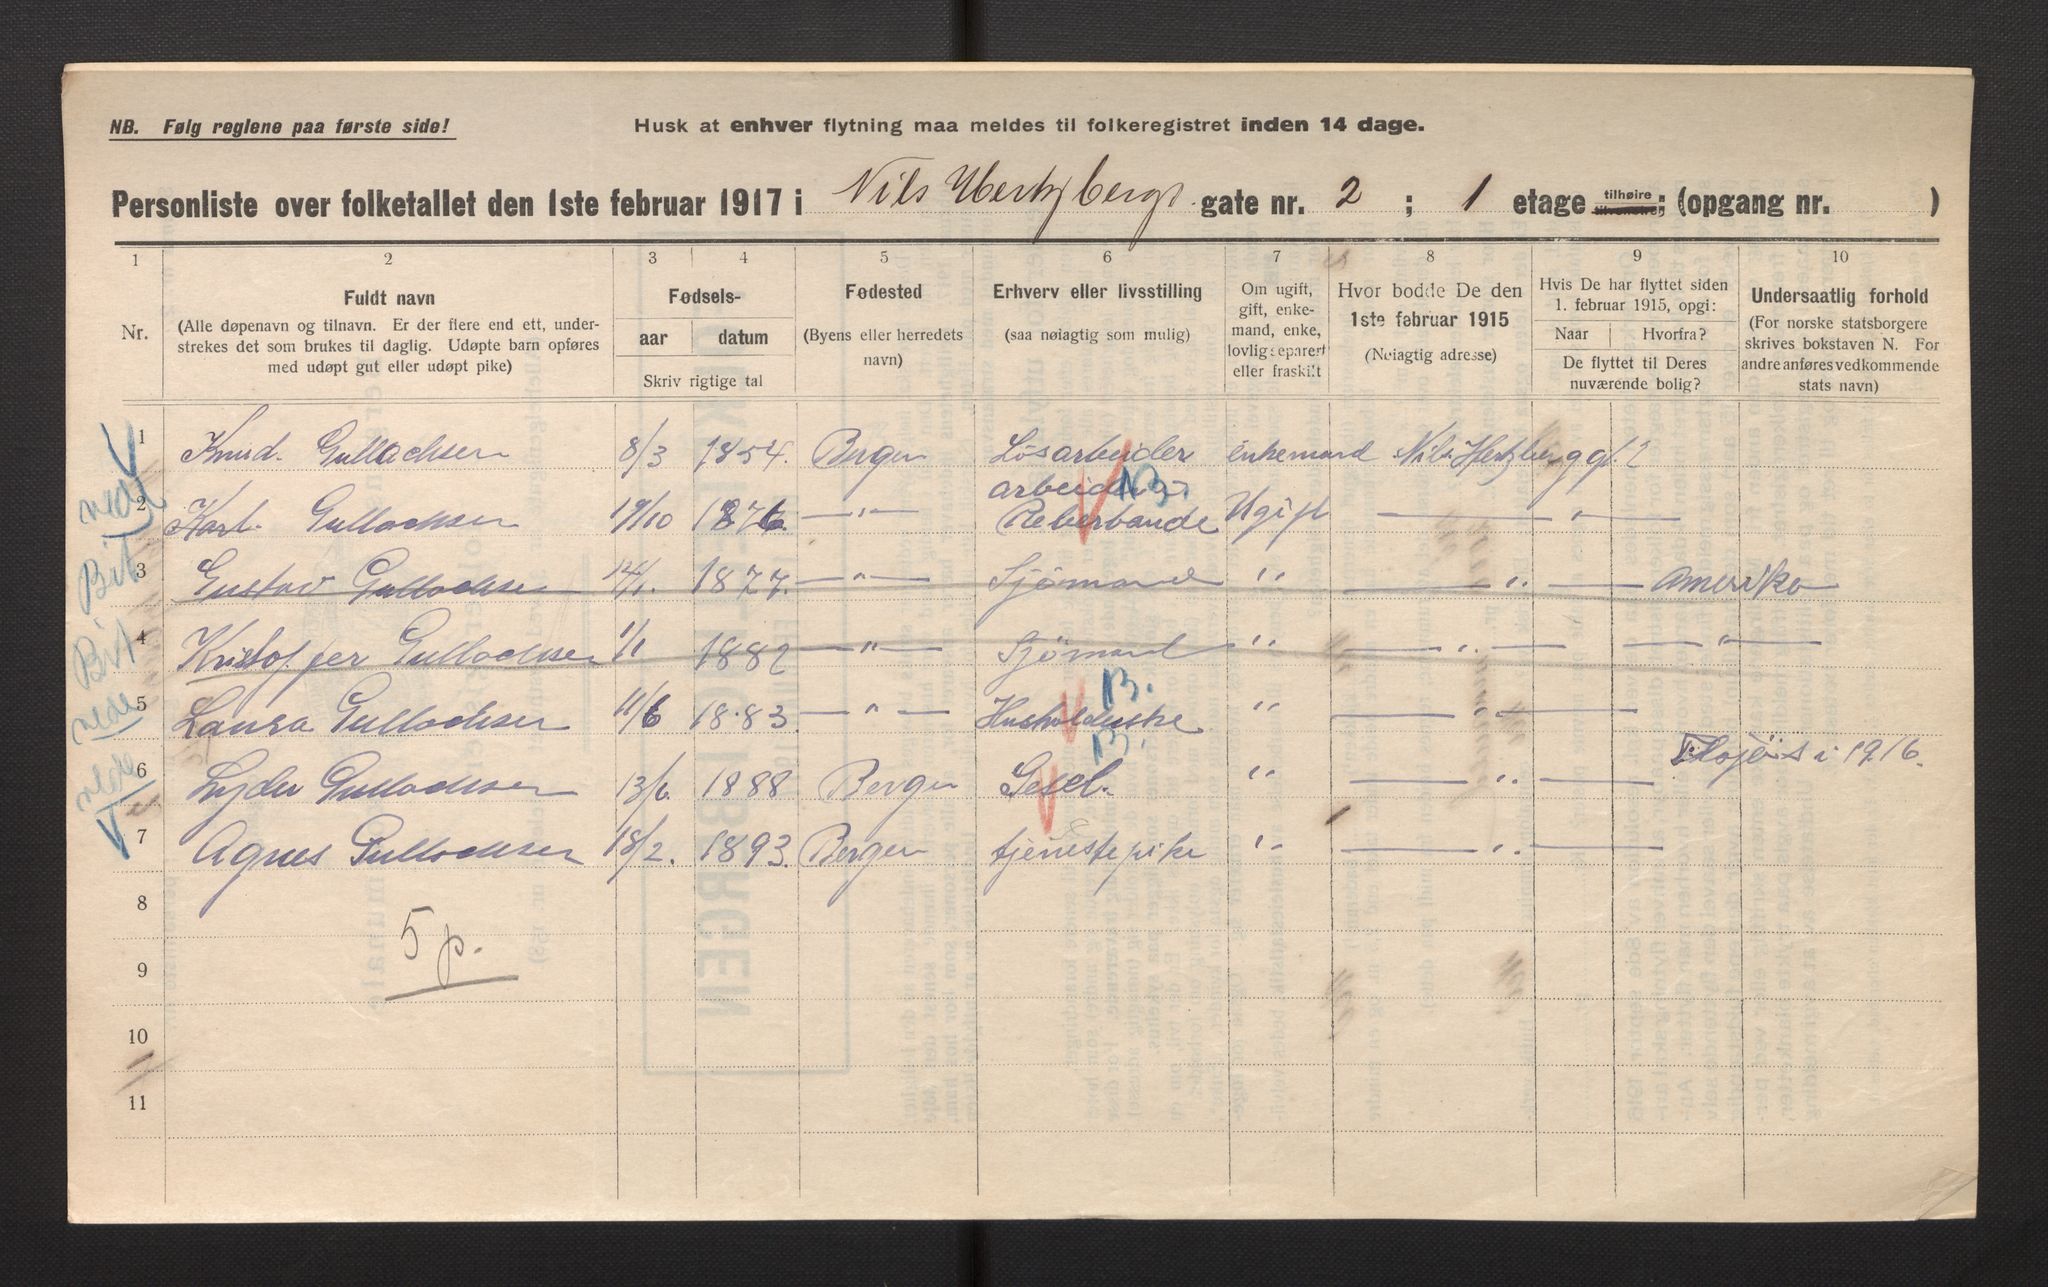 NB. Følg reglene paa første side!
Husk at enhver flytning maa meldes til folkeregistret inden 14 dage.
Personliste over folketallet den 1ste februar 1917 i Nils Hertzbergs gate nr. 2 ; 1 etage tilhøire tilvenstre; (opgang nr. )
1 2 3 4 5 6 7 8 9 10
Nr.
Fuldt navn
(Alle døpenavn og tilnavn. Er der flere end ett, under-
strekes det som brukes til daglig. Udøpte barn opføres
med udøpt gut eller udøpt pike)
Fødsels-
aar datum
Skriv rigtige tal
Fødested
(Byens eller herredets
navn)
Erhverv eller livsstilling
(saa nøiagtig som mulig)
Om ugift,
gift, enke-
mand, enke,
lovlig separert
eller fraskilt
Hvor bodde De den
1ste februar 1915
(Nøiagtig adresse)
Hvis De har flyttet siden
1. februar 1915, opgi:
Naar Hvorfra?
De flyttet til Deres
nuværende bolig?
Undersaatlig forhold
(For norske statsborgere
skrives bokstaven N. For
andre anføres vedkommende
stats navn)
1 Knud. Gullachsen 8/3 1854. Bergen Løsarbeider enkemand Nils Hertzberg gt. 2
arbeider B.
2 Karl. Gullachsen 19/10 1876 — " — Reberbande Ugift — " —
3 Gustav Gullachsen 1877. — " — Sjømand " — " — Amerika
4 Kristoffer Gullachsen 1/1 1882 — " — Sjømand " — " — — " —
B.
5 Laura Gullachsen 11/6 1883 — " — Husholderske " — " —
B.
Tilojers i 1916.
6 Lyder Gullachsen 13/6. 1888 Bergen Gesel. " — " —
7 Agnes Gullachsen 18/2. 1893. Bergen tjenestepike " — " —
8
5 p.
9
10
11
nede
Bit
Bit
nede
nede